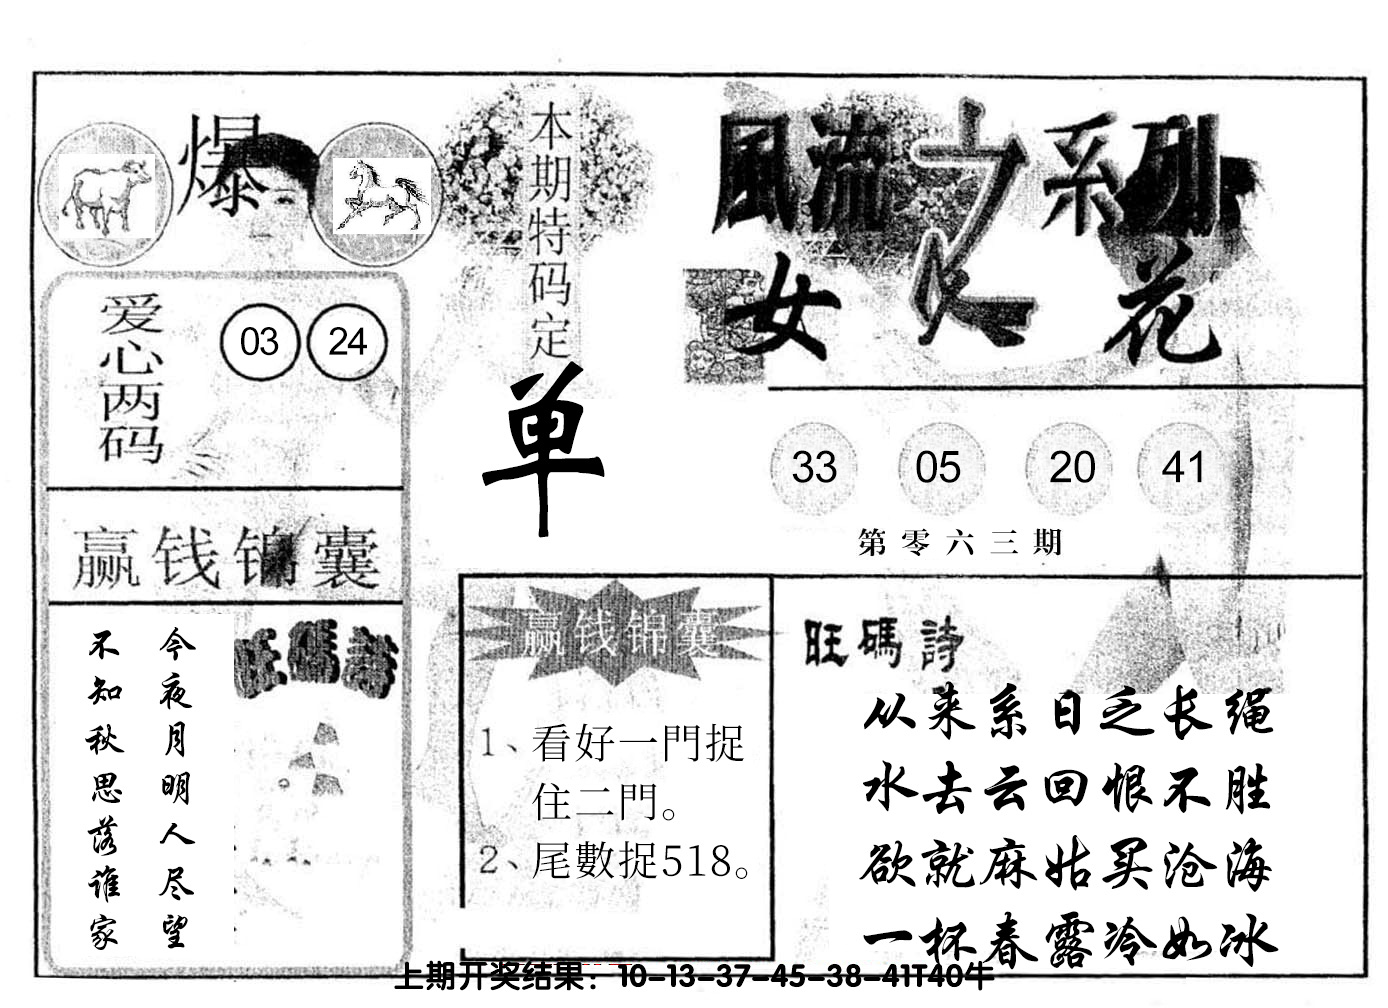 爆
本期特码定
单
風流之系列
女人花
爱心两码
03 24
33 05 20 41
第零六三期
赢钱锦囊
旺碼詩
今夜月明人尽望
不知秋思落谁家
赢钱锦囊
1、看好一門捉
住二門。
2、尾數捉518。
旺碼詩
从来系日乏长绳
水去云回恨不胜
欲就麻姑买沧海
一杯春露冷如冰
上期开奖结果：10-13-37-45-38-41T40牛